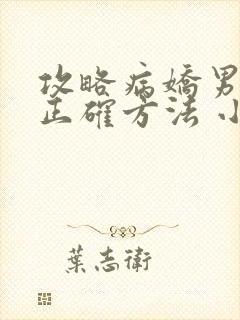 攻略病嬌男
正確方法 小
葉志衛